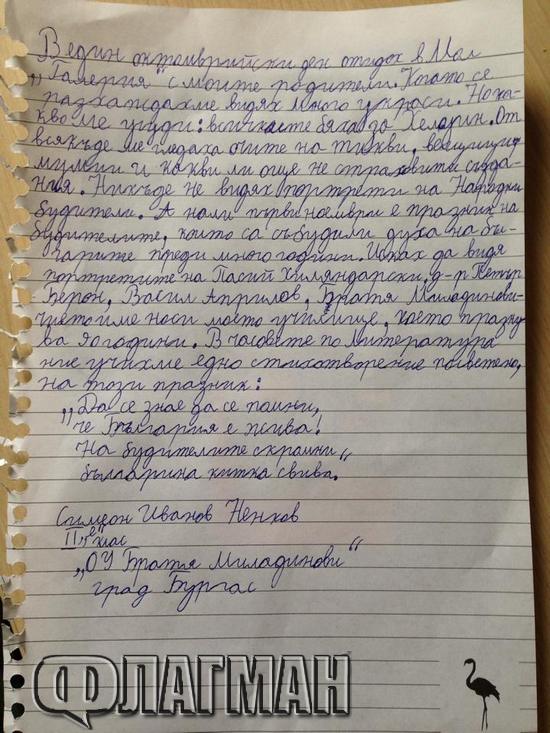 В един октомврийски ден отидох в Мол
„Галерия" с моите родители. Когато се
разхождахме видях много украси. Но ка-
кво ме учуди: всичките бяха за Хелоуин. От
всякъде ме гледаха очите на тикви, вещици,
мумии и какви ли още не страховити създа-
ния. Никъде не видях портрети на Народни
будители. А нали първи ноември е празник на
будителите, които са събудили духа на бъ-
гарите преди много години. Исках да видя
портретите на Паисий Хилендарски, д-р Петър
Берон, Васил Априлов, Братя Миладинови-
чието име носи моето училище, което празну-
ва 90 години. В часовете по литература
ние учихме едно стихотворение посветено,
на този празник:
„Да се знае да се помни,
че България е жива!
На будителите скромни
българина китка свива."
Симеон Иванов Ненков
II клас
„ОУ Братя Миладинови"
град Бургас
ФЛАГМАН